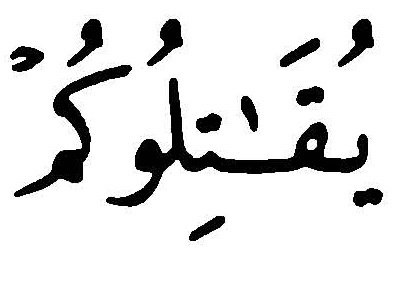 يُقَـٰتِلُوكُمۡ